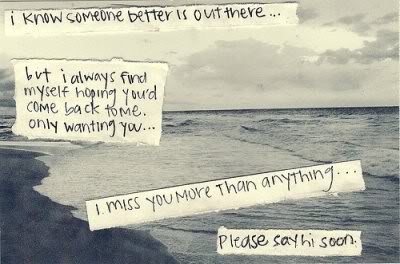 i know someone better is out there...
but i always find
myself hoping you'd
come back to me.
only wanting you...
I miss you more than anything...
Please say hi soon.